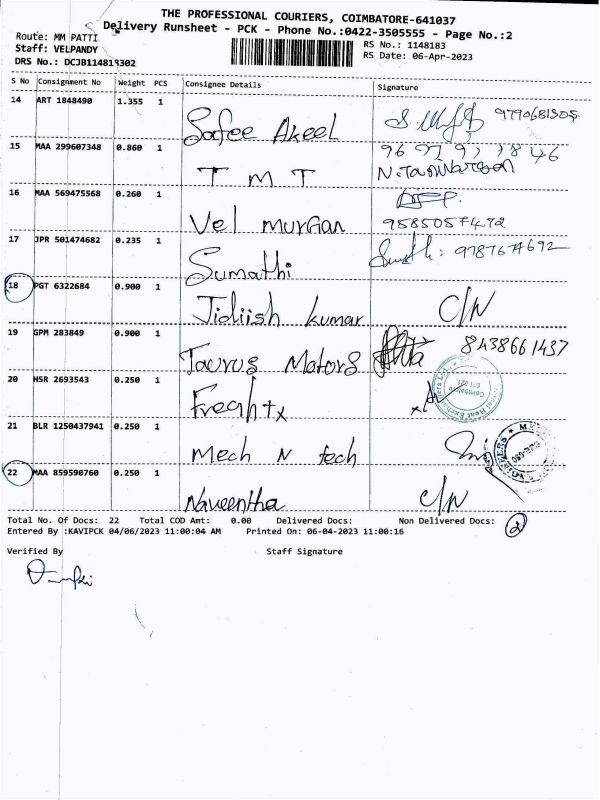 THE PROFESSIONAL COURIERS, COIMBATORE-641037
Delivery Runsheet - PCK - Phone No.:0422-3505555 - Page No.:2
Route: MM PATTI
Staff: VELPANDY
RS No.: 1148183
RS Date: 06-Apr-2023
DRS No.: DCJB1148183302
S No Consignment No Weight PCS Consignee Details Signature
14 ART 1848490 1.355 1 Safee Akeel 9790681305
15 MAA 299607348 0.860 1 T M T
16 MAA 569475568 0.260 1 Vel murgan 9585057472
17 JPR 501474682 0.235 1 Sumathi 9787674692
18 PGT 6322684 0.900 1 Jidiish kumar C/N
19 GPM 283849 0.900 1 Taurus Motors 8438661437
20 HSR 2693543 0.250 1
21 BLR 1250437941 0.250 1 Mech N tech
22 MAA 859590760 0.250 1 Naveentha C/N
Total No. Of Docs: 22 Total COD Amt: 0.00 Delivered Docs: Non Delivered Docs: 2
Entered By :KAVIPCK 04/06/2023 11:00:04 AM Printed On: 06-04-2023 11:00:16
Verified By Staff Signature